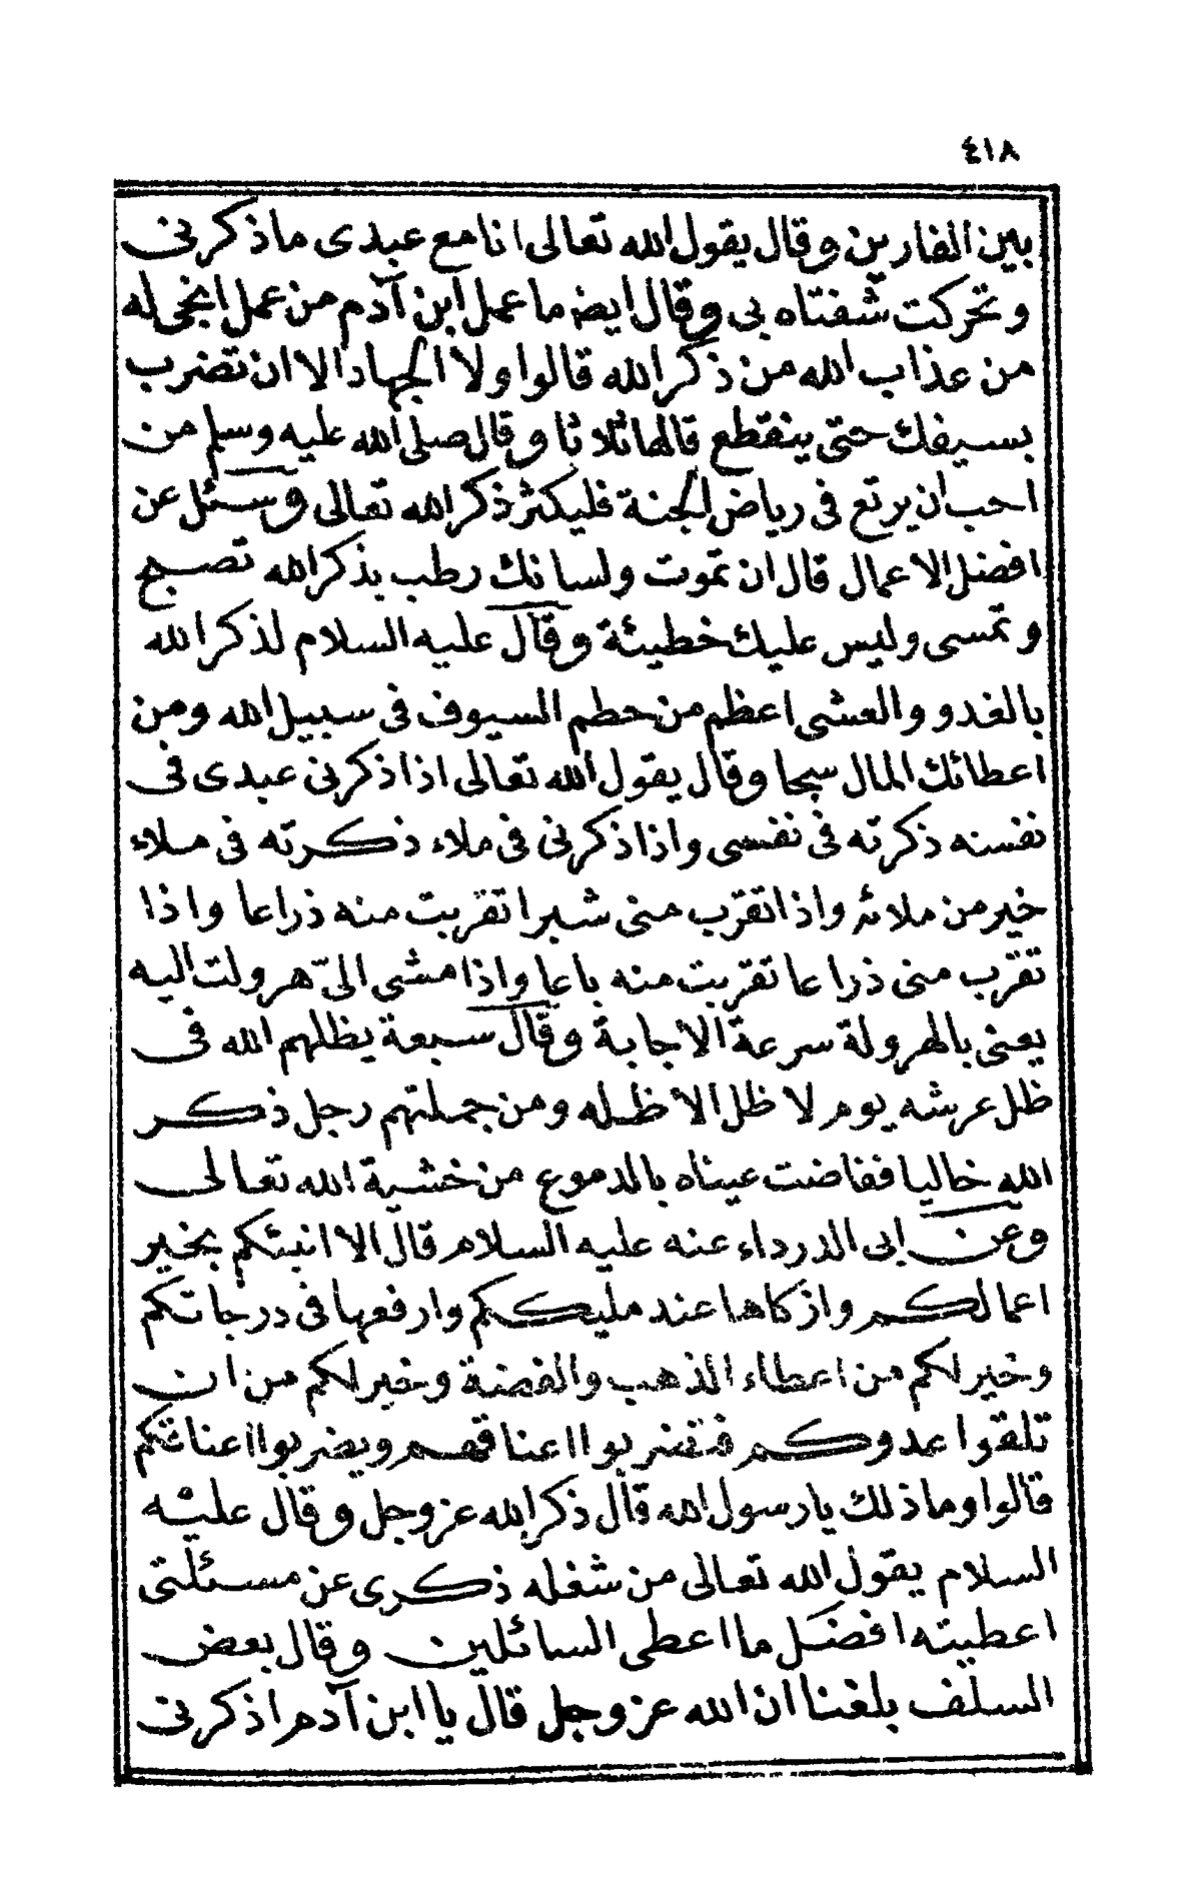 ٤١٨
بين الفارين وقال يقول الله تعالى انا مع عبدى ما ذكرنى
وتحركت شفتاه بى وقال ايضا ما عمل ابن آدم من عمل انجى له
من عذاب الله من ذكر الله قالوا ولا الجهاد الا ان تضرب
بسيفك حتى ينقطع قالها ثلاثا وقال صلى الله عليه وسلم من
احب ان يرتع فى رياض الجنة فليكثر ذكر الله تعالى وسئل عن
افضل الاعمال قال ان تموت ولسانك رطب بذكر الله تصبح
وتمسى وليس عليك خطيئة وقال عليه السلام لذكر الله
بالغدو والعشى اعظم من حطم السيوف فى سبيل الله ومن
اعطائك المال سحا وقال يقول الله تعالى اذا ذكرنى عبدى فى
نفسه ذكرته فى نفسى واذا ذكرنى فى ملاء ذكرته فى ملاء
خير من ملائه واذا تقرب منى شبرا تقربت منه ذراعا واذا
تقرب منى ذراعا تقربت منه باعا واذا مشى الىّ هرولت اليه
يعنى بالهرولة سرعة الاجابة وقال سبعة يظلهم الله فى
ظل عرشه يوم لا ظل الا ظله ومن جملتهم رجل ذكر
الله خاليا ففاضت عيناه بالدموع من خشية الله تعالى
وعن ابى الدرداء عنه عليه السلام قال الا انبئكم بخير
اعمالكم وازكاها عند مليككم وارفعها فى درجاتكم
وخير لكم من اعطاء الذهب والفضة وخير لكم من ان
تلقوا عدوكم فتضربوا اعناقهم ويضربوا اعناقكم
قالوا وما ذلك يا رسول الله قال ذكر الله عز وجل وقال عليه
السلام يقول الله تعالى من شغله ذكرى عن مسئلتى
اعطيته افضل ما اعطى السائلين وقال بعض
السلف بلغنا ان الله عز وجل قال يا ابن آدم اذكرنى